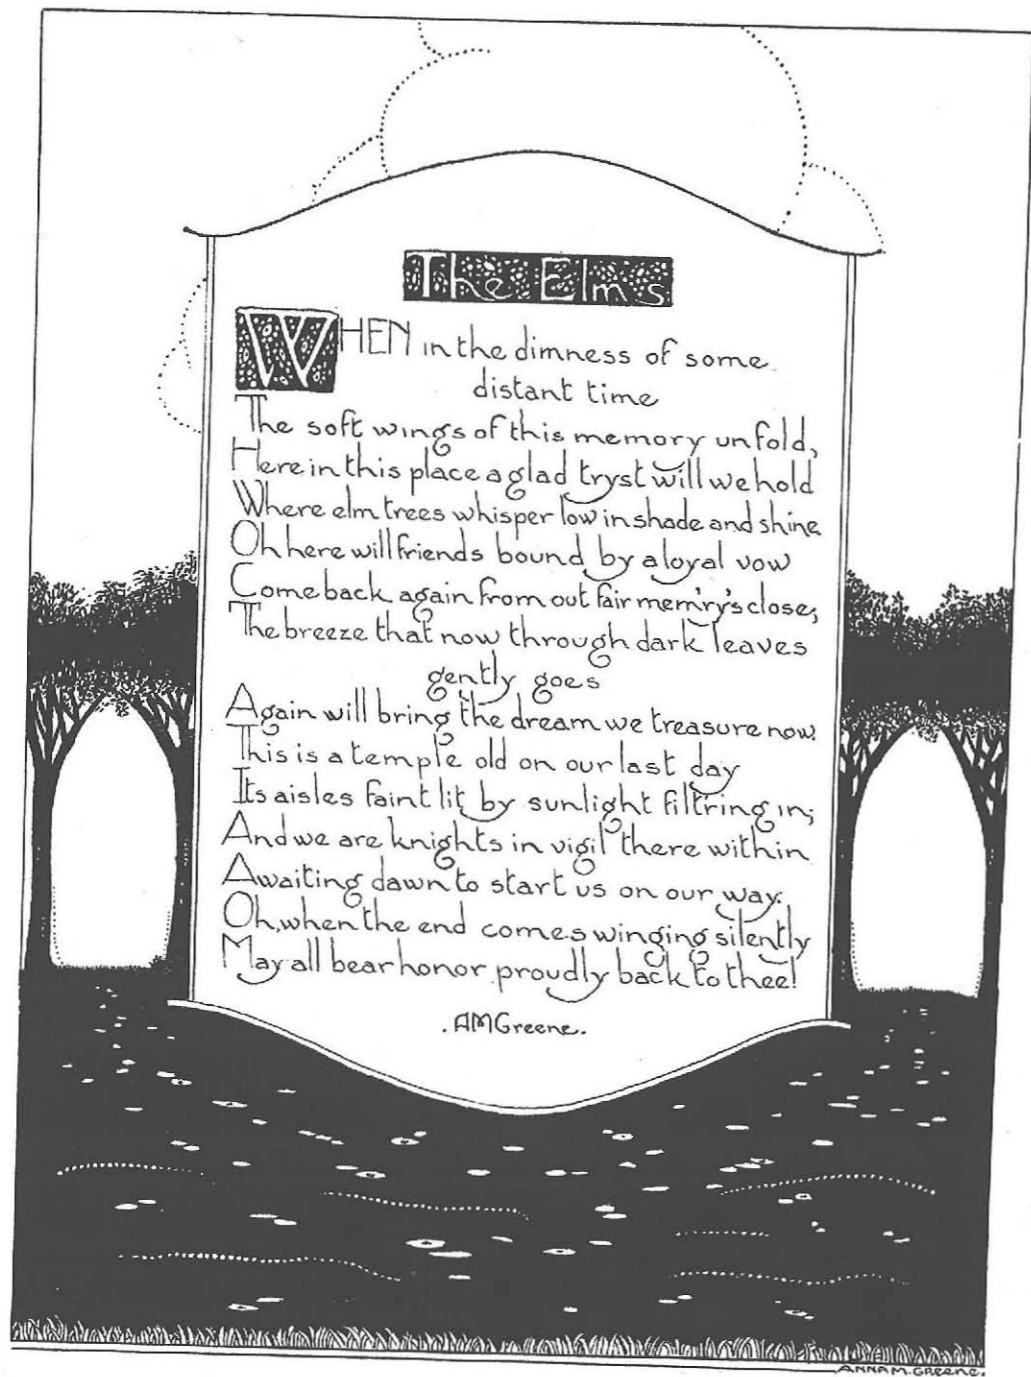 The Elms
WHEN in the dimness of some
distant time
The soft wings of this memory unfold,
Here in this place a glad tryst will we hold
Where elm trees whisper low in shade and shine
Oh here will friends bound by a loyal vow
Come back again from out fair mem'ry's close,
The breeze that now through dark leaves
gently goes
Again will bring the dream we treasure now.
This is a temple old on our last day
Its aisles faint lit by sunlight filt'ring in;
And we are knights in vigil there within
Awaiting dawn to start us on our way.
Oh, when the end comes winging silently
May all bear honor proudly back to thee!
. AMGreene.
ANNA M. GREENE.